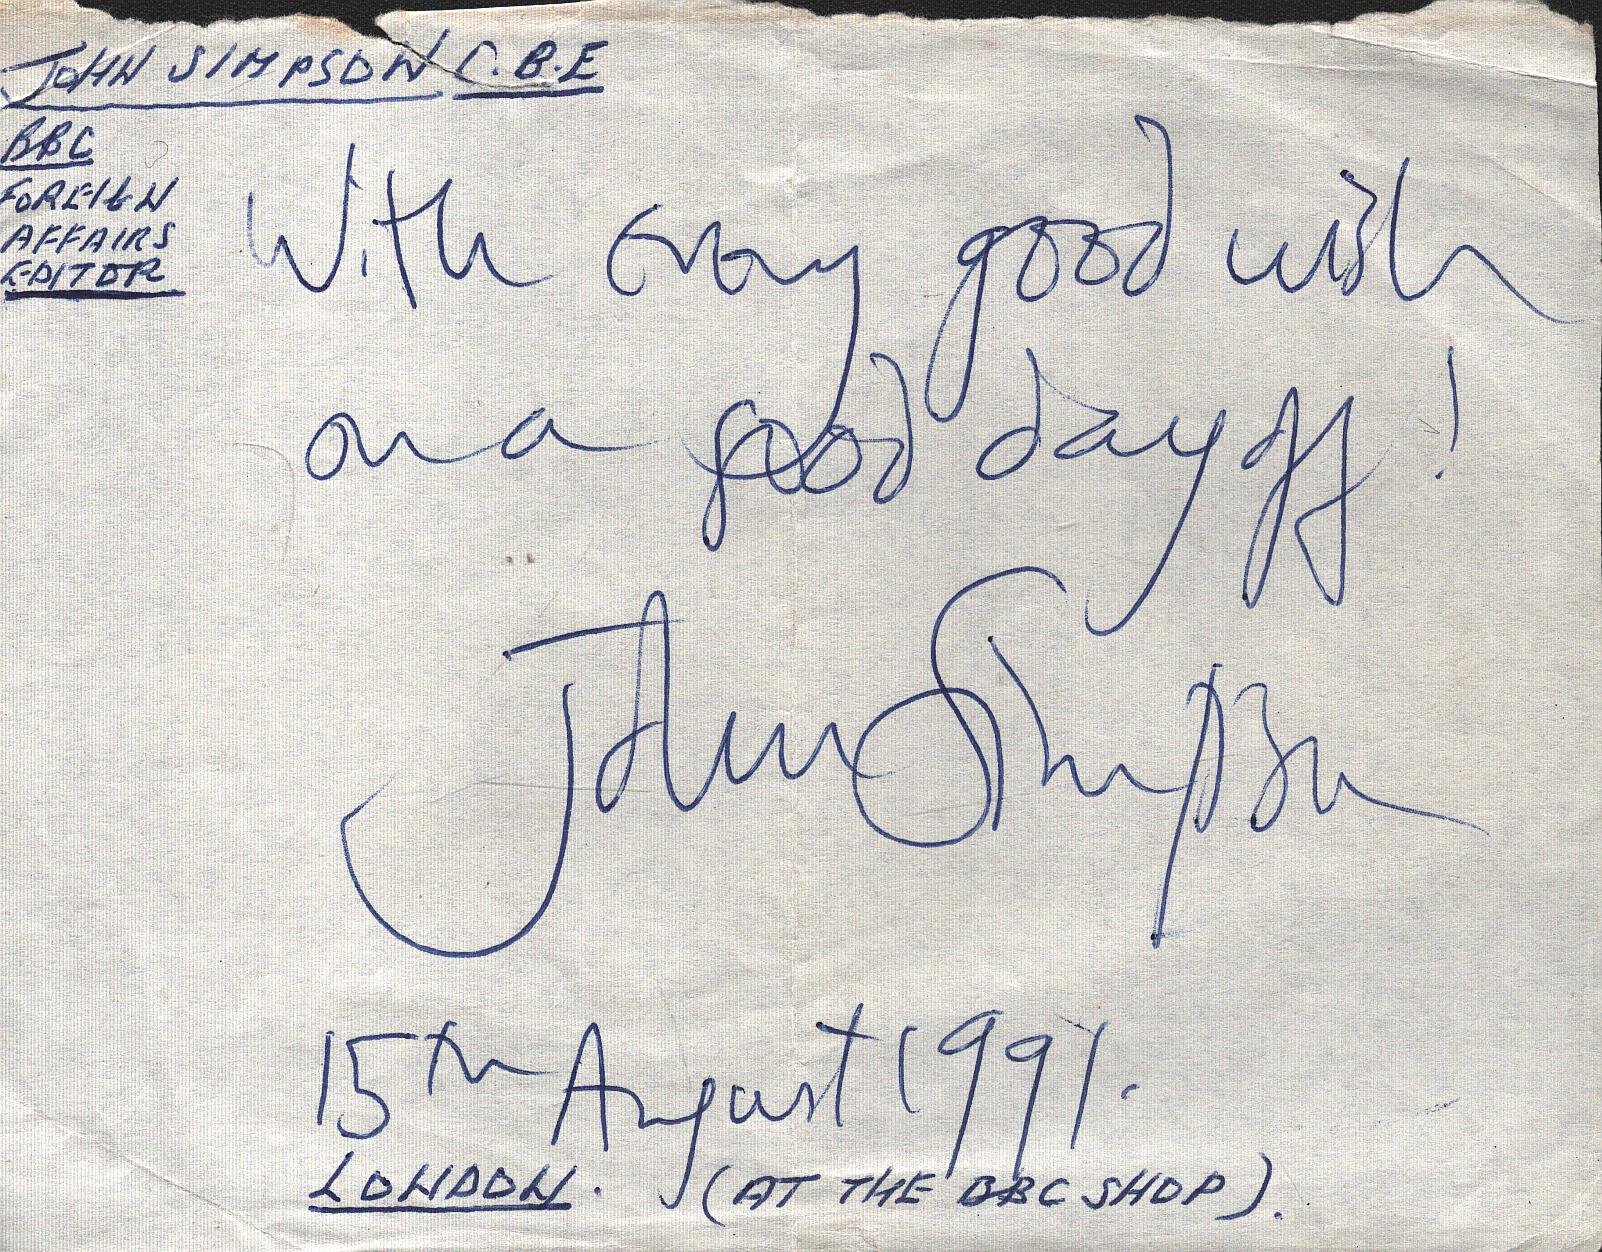 JOHN SIMPSON C.B.E
BBC
FOREIGN
AFFAIRS
EDITOR
With every good wish
on a good day off!
John Simpson
15th August 1991.
LONDON. (AT THE BBC SHOP).